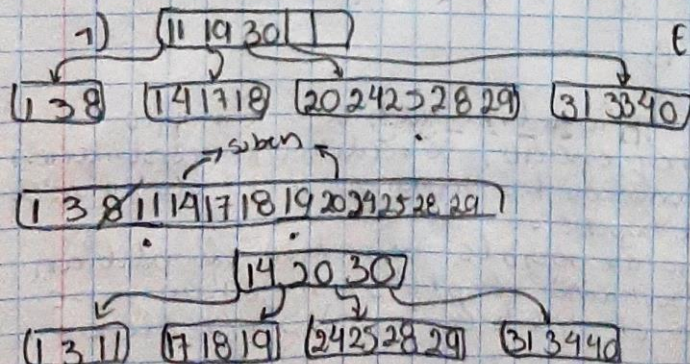 1) 11 19 30 E
1 3 8 14 17 18 20 24 25 28 29 31 33 40
suben
1 3 8 11 14 17 18 19 20 24 25 28 29
14 20 30
1 3 11 17 18 19 24 25 28 29 31 34 40